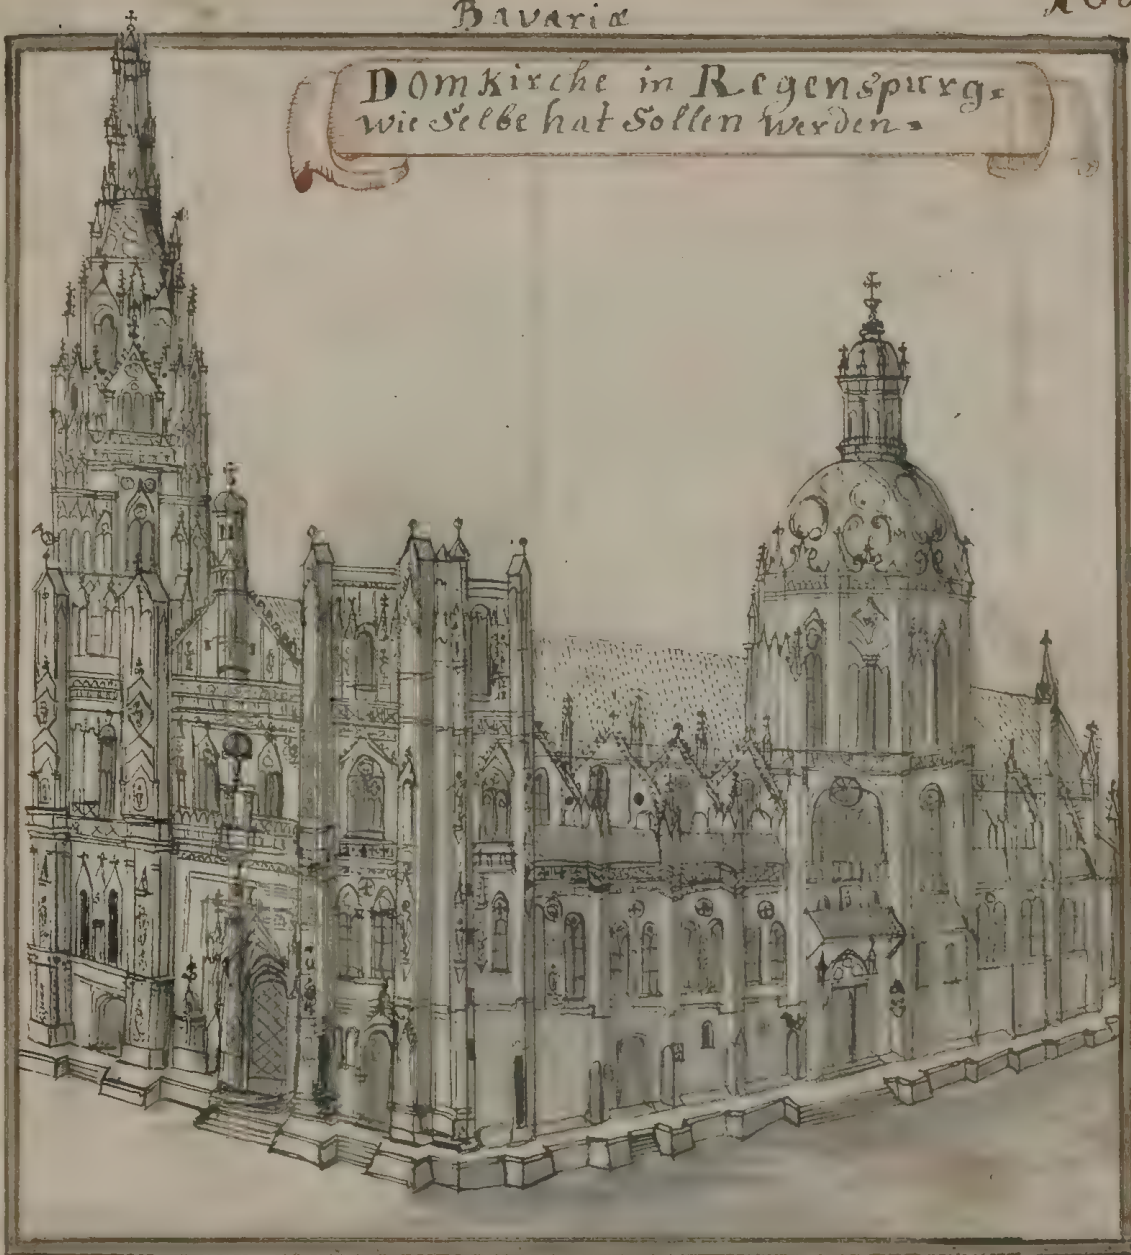 Bavariæ
Domkirche in Regenspurg.
wie Selbe hat Sollen werden.